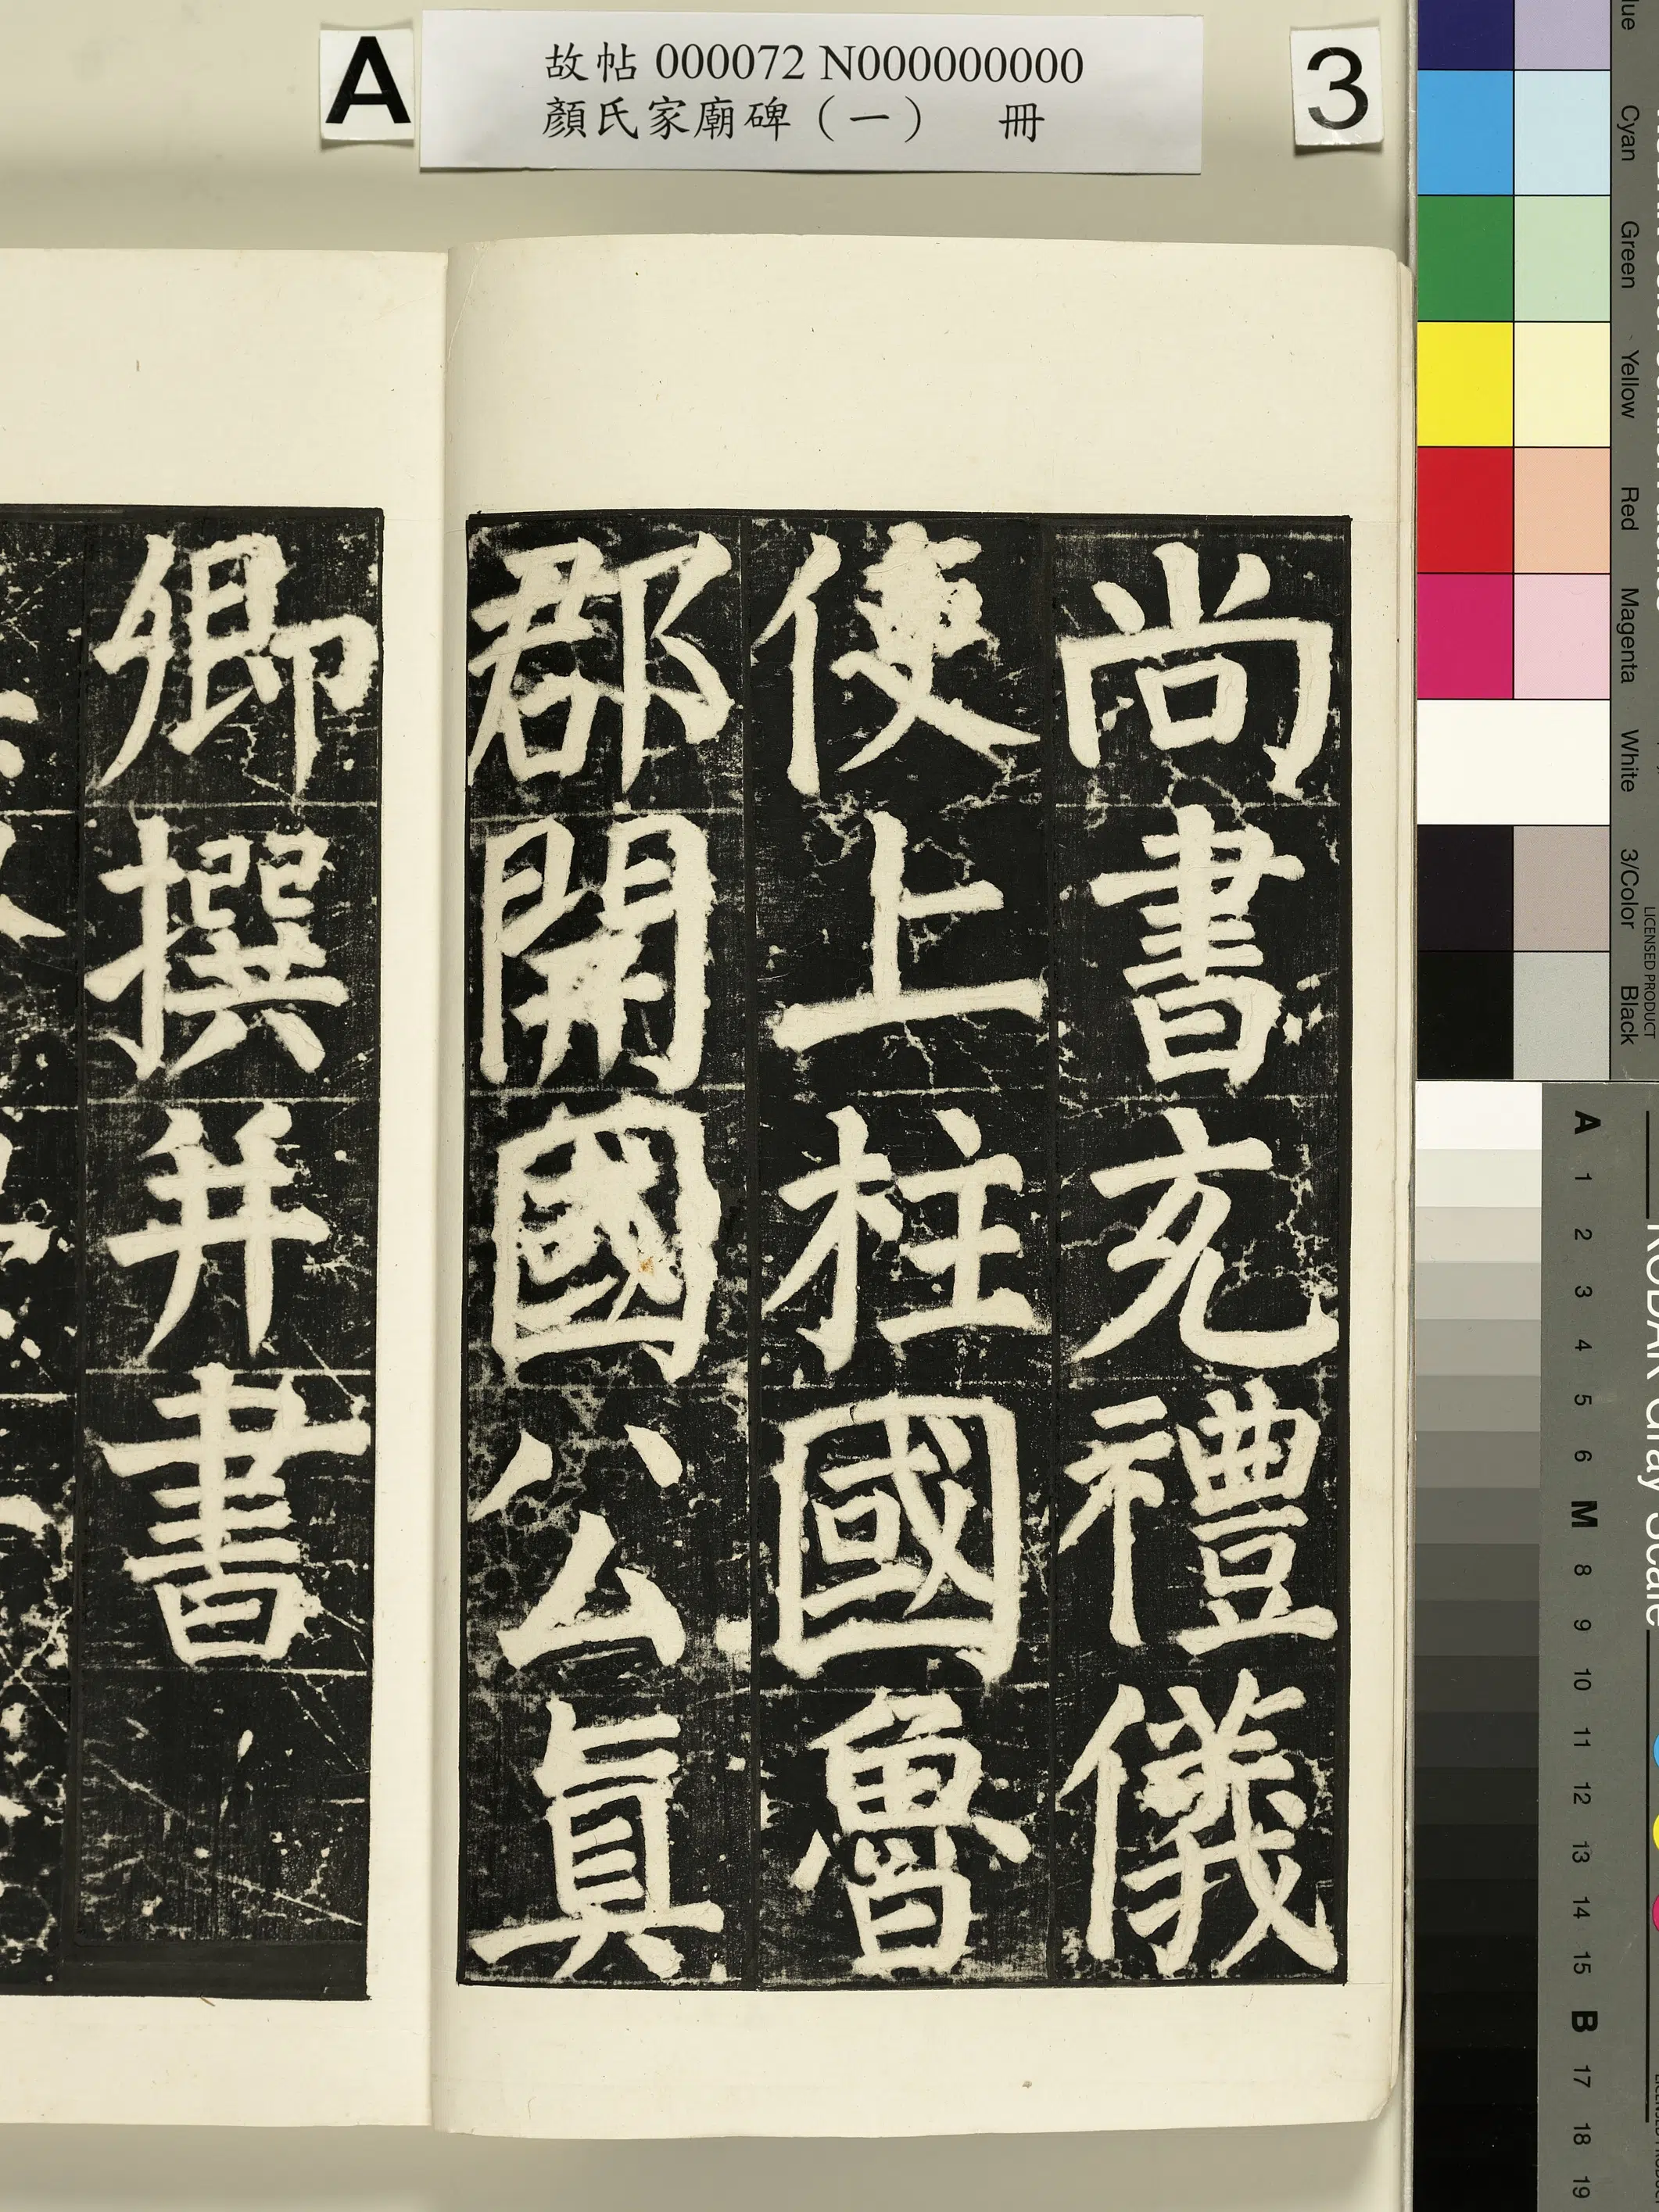 A
故帖 000072 N000000000
顏氏家廟碑（一） 冊
3
尚書充禮儀
使上柱國魯
郡開國公真
卿撰并書
Cyan
Green
Yellow
Red
Magenta
White
3/Color
Black
LICENSED PRODUCT
KODAK Gray Scale
A 1 2 3 4 5 6 M 8 9 10 11 12 13 14 15 B 17 18 19